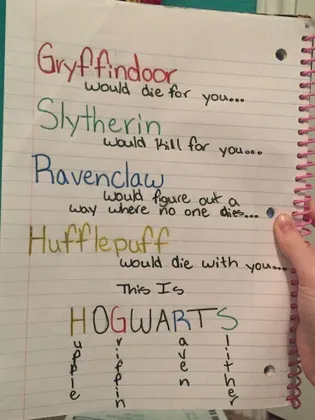 Gryffindoor
would die for you...
Slytherin
would kill for you...
Ravenclaw
would figure out a
way where no one dies...
Hufflepuff
would die with you...
This Is
HOGWARTS
uffle
riffin
aven
lither